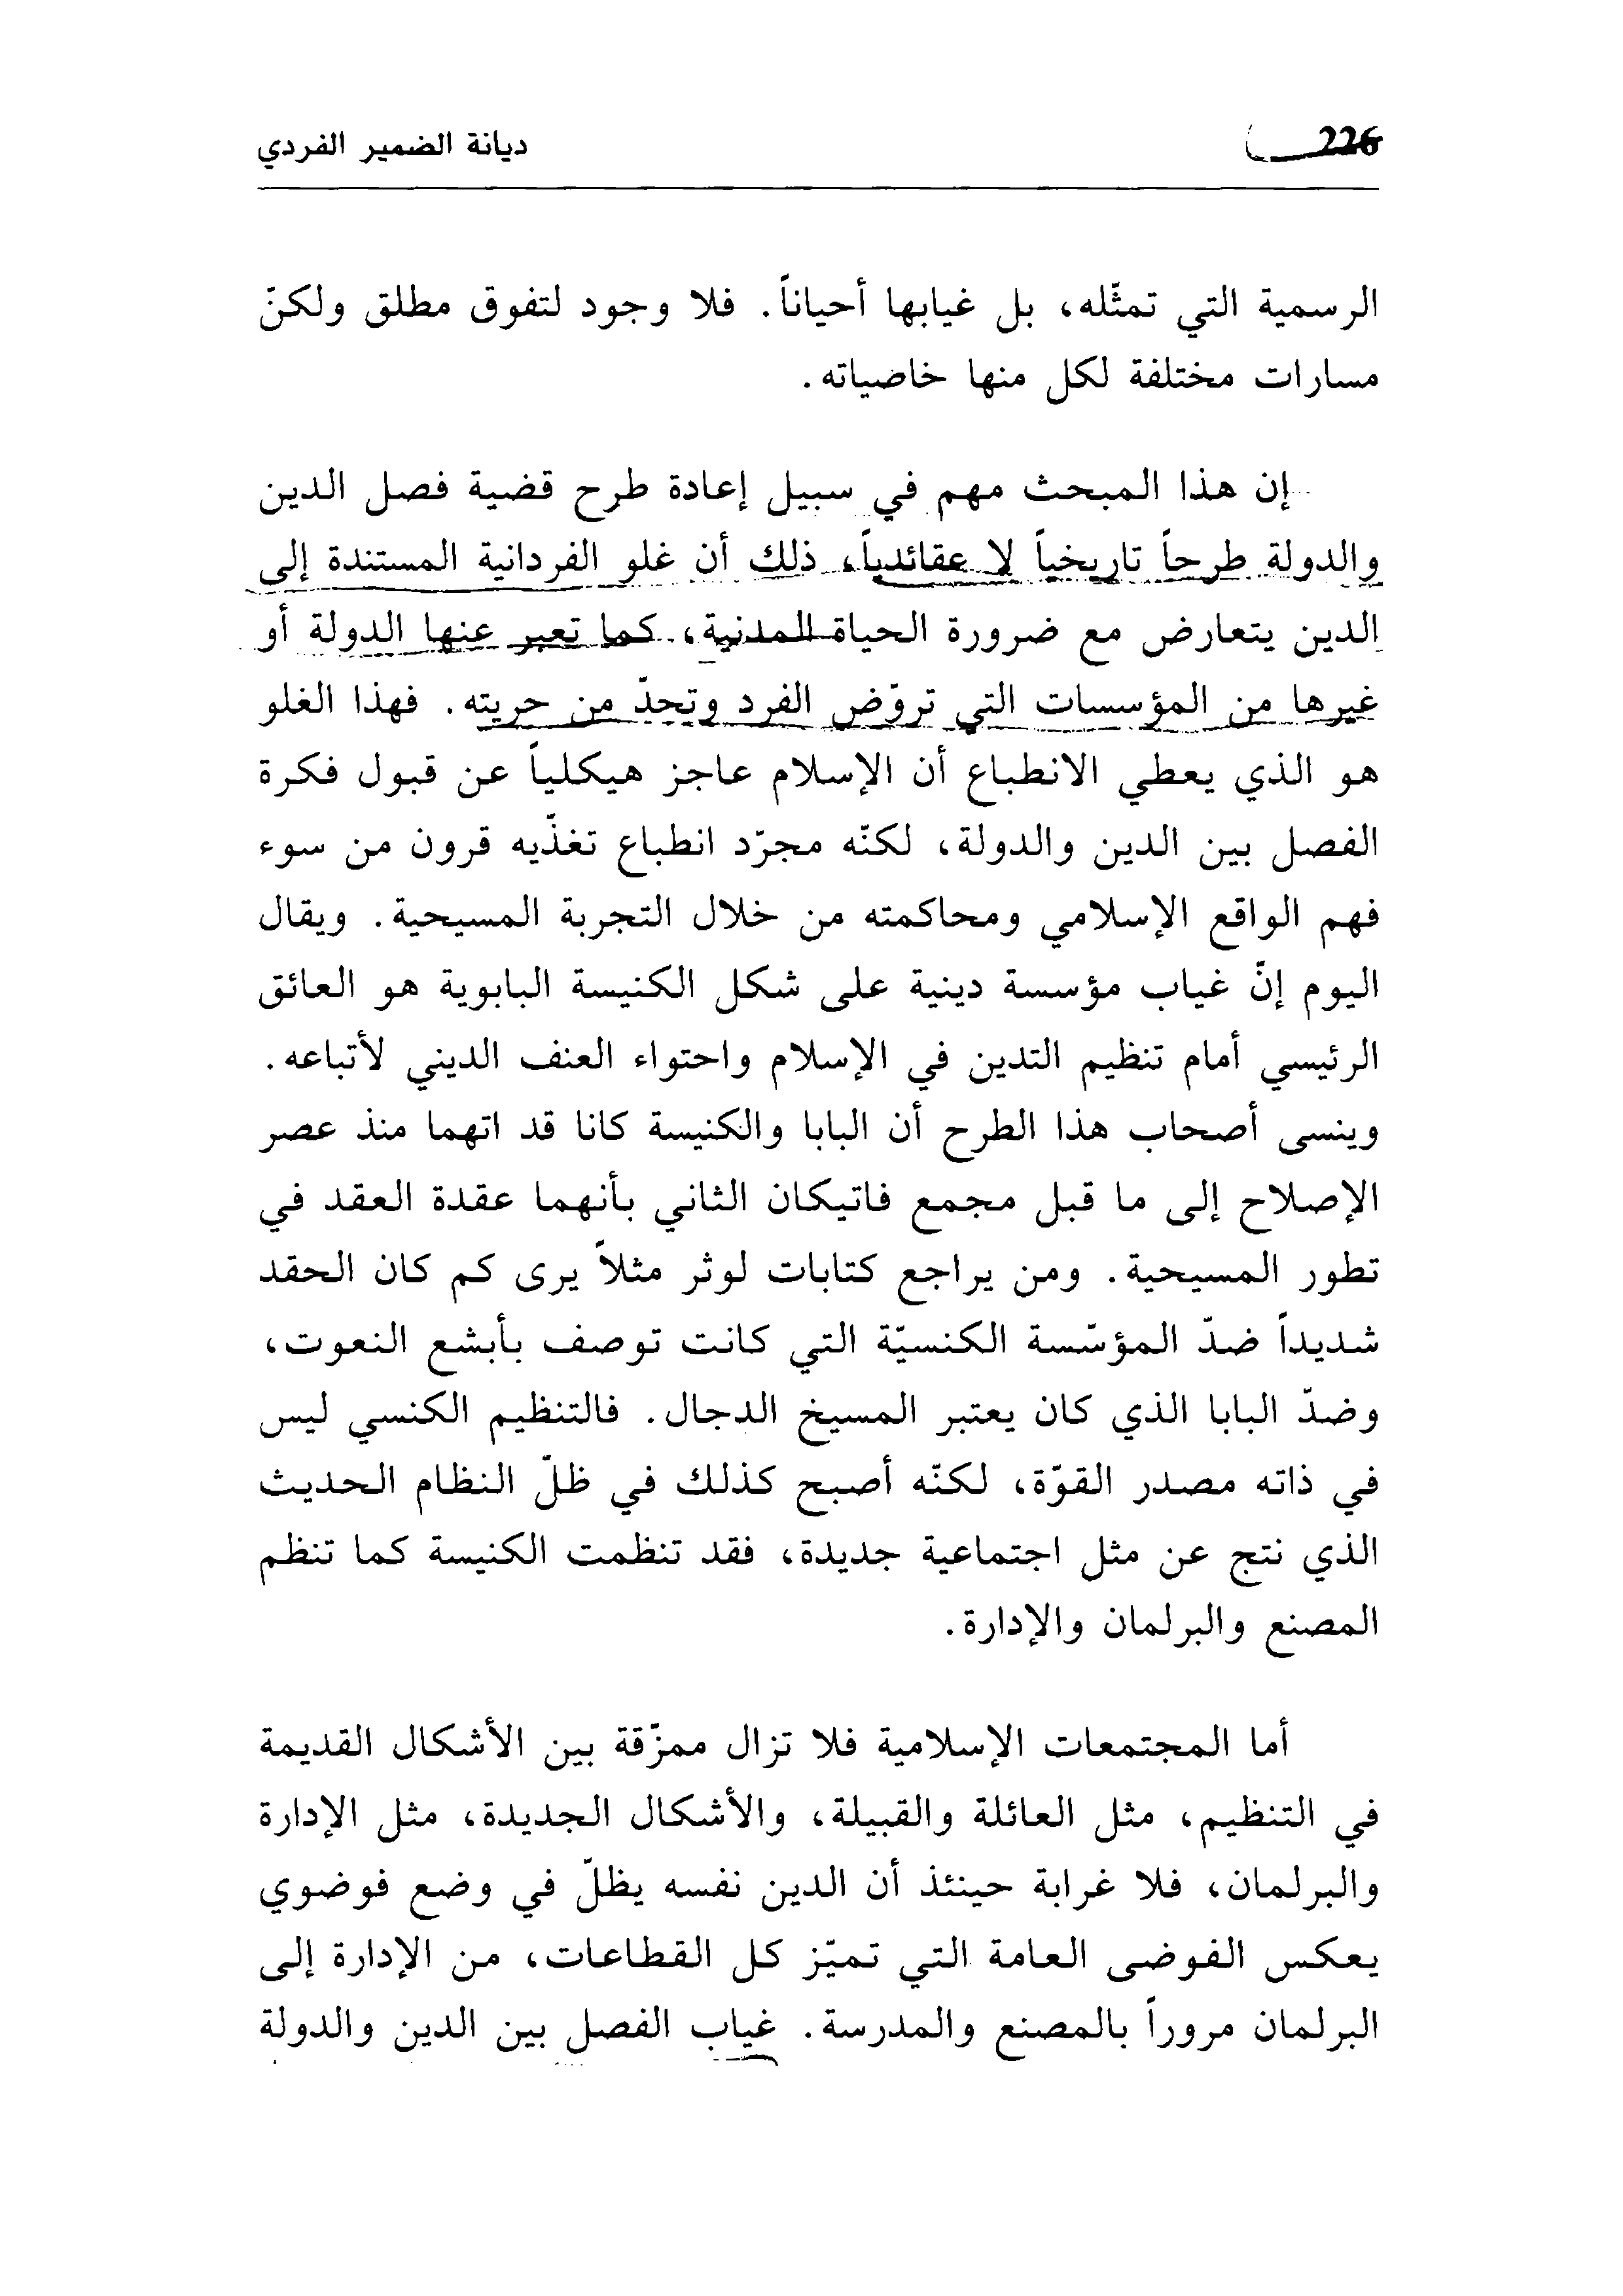 226
ديانة الضمير الفردي
الرسمية التي تمثّله، بل غيابها أحياناً. فلا وجود لتفوق مطلق ولكنّ
مسارات مختلفة لكل منها خاصياته.
إن هذا المبحث مهم في سبيل إعادة طرح قضية فصل الدين
والدولة طرحاً تاريخياً لا عقائدياً، ذلك أن غلو الفردانية المستندة إلى
الدين يتعارض مع ضرورة الحياة المدنية، كما تعبر عنها الدولة أو
غيرها من المؤسسات التي تروّض الفرد وتحدّ من حريته. فهذا الغلو
هو الذي يعطي الانطباع أن الإسلام عاجز هيكلياً عن قبول فكرة
الفصل بين الدين والدولة، لكنّه مجرّد انطباع تغذّيه قرون من سوء
فهم الواقع الإسلامي ومحاكمته من خلال التجربة المسيحية. ويقال
اليوم إنّ غياب مؤسسة دينية على شكل الكنيسة البابوية هو العائق
الرئيسي أمام تنظيم التدين في الإسلام واحتواء العنف الديني لأتباعه.
وينسى أصحاب هذا الطرح أن البابا والكنيسة كانا قد اتهما منذ عصر
الإصلاح إلى ما قبل مجمع فاتيكان الثاني بأنهما عقدة العقد في
تطور المسيحية. ومن يراجع كتابات لوثر مثلاً يرى كم كان الحقد
شديداً ضدّ المؤسّسة الكنسيّة التي كانت توصف بأبشع النعوت،
وضدّ البابا الذي كان يعتبر المسيخ الدجال. فالتنظيم الكنسي ليس
في ذاته مصدر القوّة، لكنّه أصبح كذلك في ظلّ النظام الحديث
الذي نتج عن مثل اجتماعية جديدة، فقد تنظمت الكنيسة كما تنظم
المصنع والبرلمان والإدارة.
أما المجتمعات الإسلامية فلا تزال ممزّقة بين الأشكال القديمة
في التنظيم، مثل العائلة والقبيلة، والأشكال الجديدة، مثل الإدارة
والبرلمان، فلا غرابة حينئذ أن الدين نفسه يظلّ في وضع فوضوي
يعكس الفوضى العامة التي تميّز كل القطاعات، من الإدارة إلى
البرلمان مروراً بالمصنع والمدرسة. غياب الفصل بين الدين والدولة